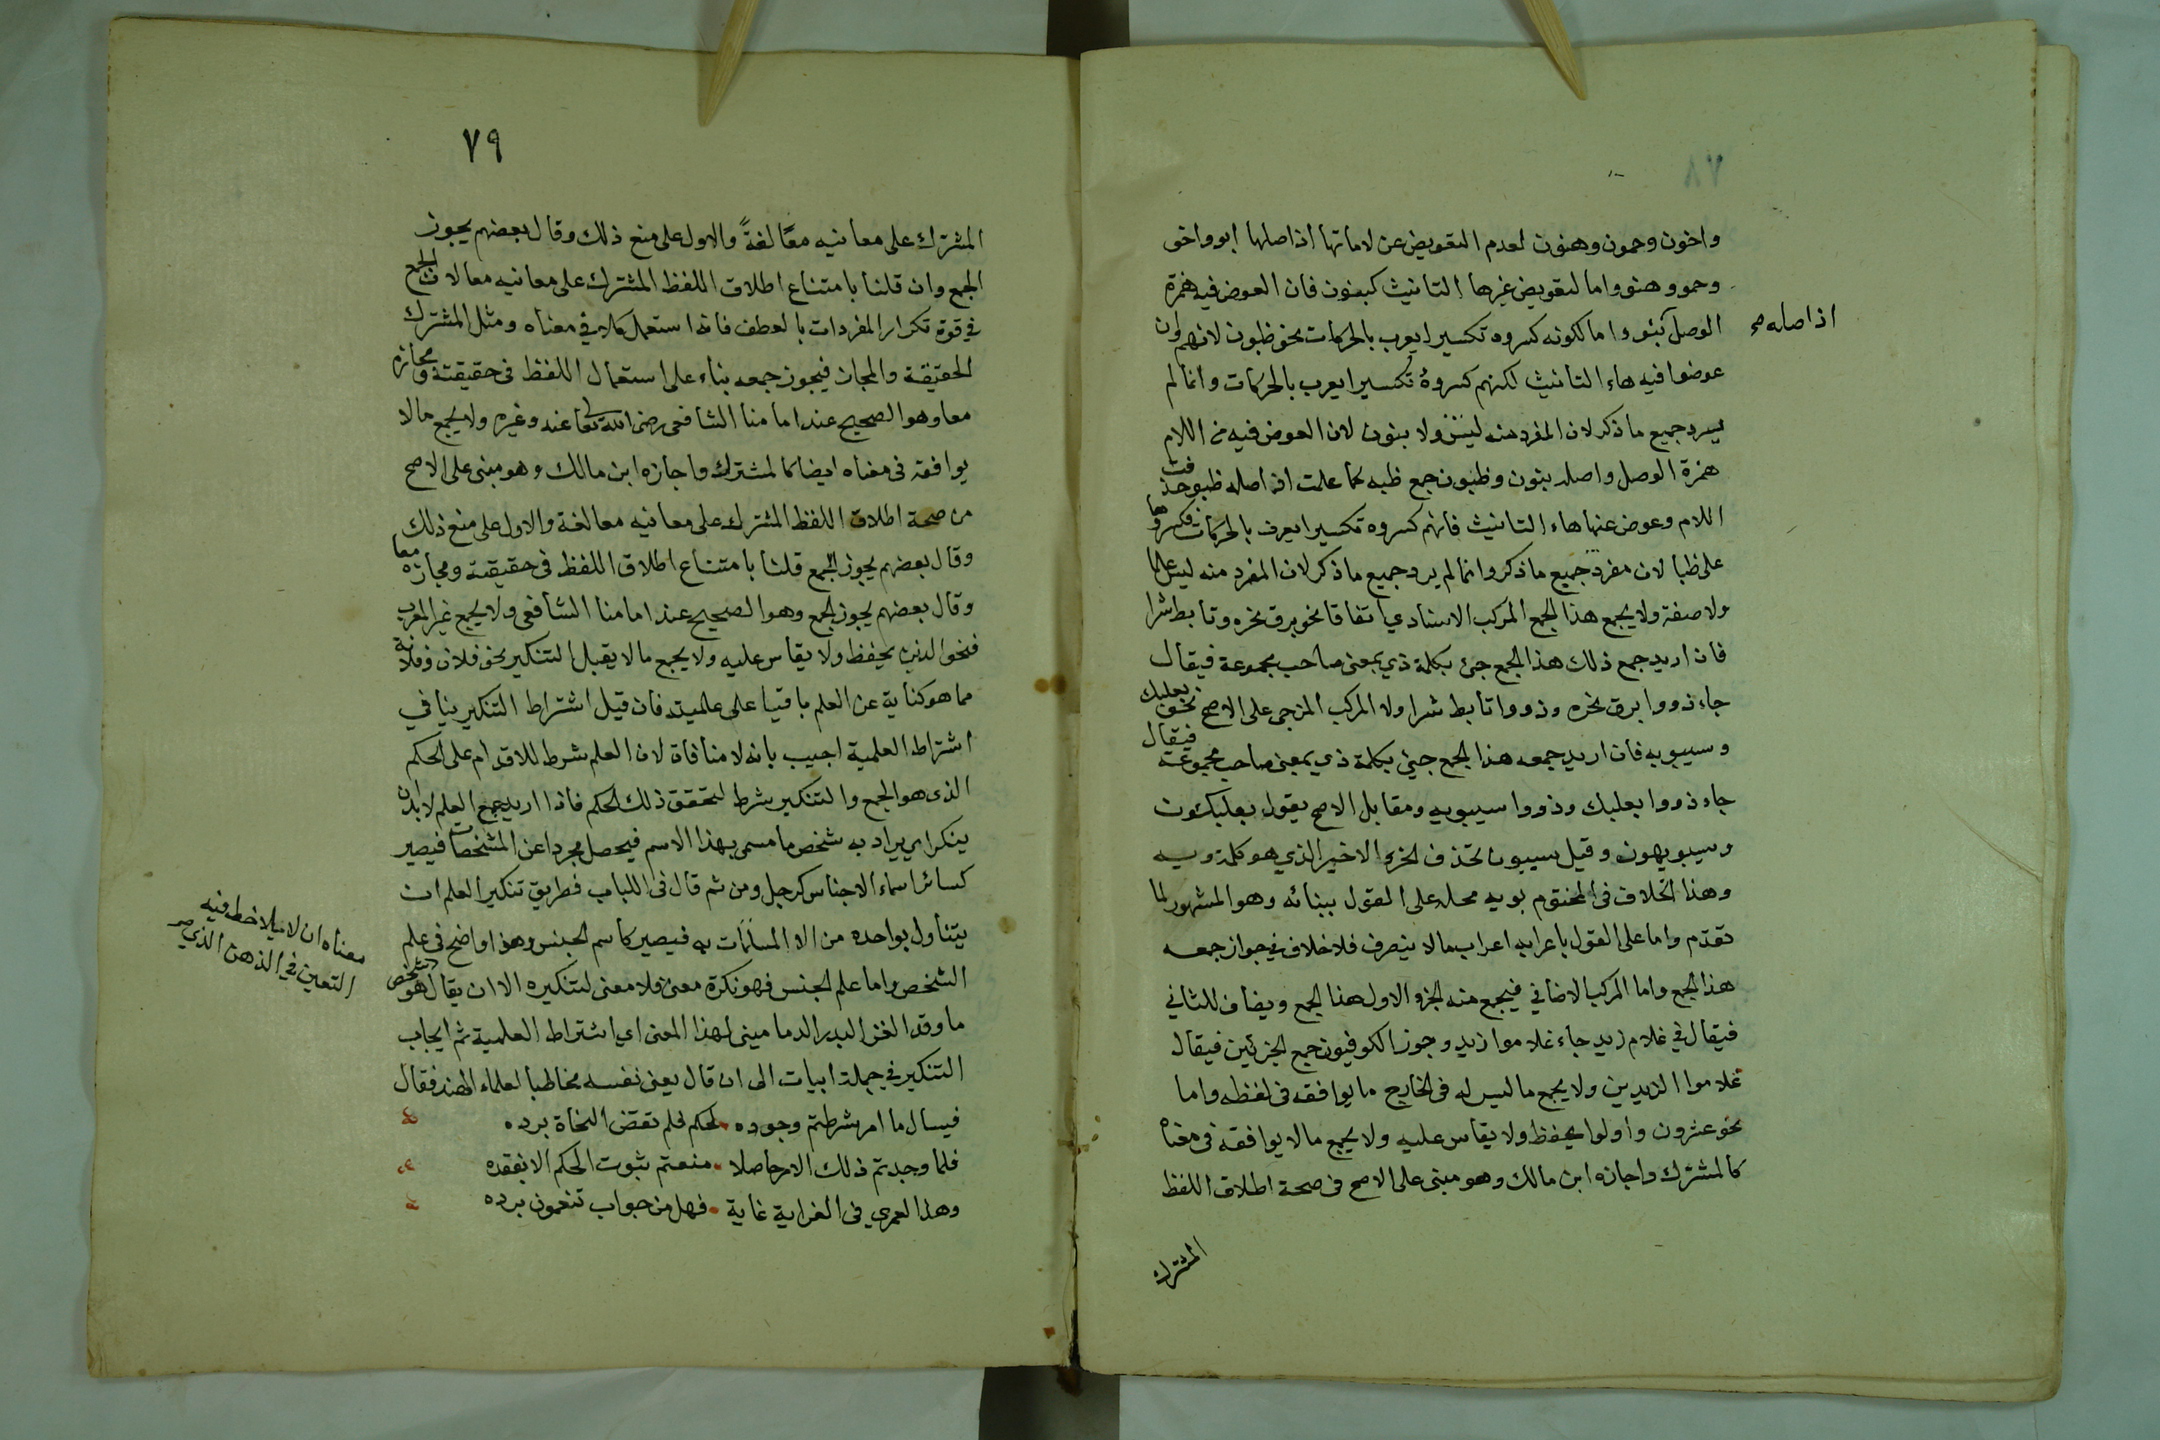 ٧٨
واخون وحمون وهنون لعدم التعويض عن لاماتها اذ اصلها ابو واخو
وحمو وهنو واما لتعويض غيرها التانيث كبنون فان العوض فيه همزة
الوصل بنو واما لكونه كسروه تكسيرا يعرب بالحركات نحو ظبون لانهم وان
اذ اصله صح
عوضوا فيه هاء التانيث لكنهم كسروه تكسيرا يعرب بالحركات وانما لم
يرد جميع ما ذكر لان المفرد منه ليس ولا بنون لان العوض فيه من اللام
همزة الوصل واصله بنون وظبون جمع ظبه كما علمت اذ اصله ظبو حذفت
اللام وعوض عنها هاء التانيث فانهم كسروه تكسيرا يعرف بالحركات فكسروها
على ظبا لان مفرد جميع ما ذكر وانما لم يرد جميع ما ذكر لان المفرد منه ليس علما
ولا صفة ولا يجمع هذا الجمع المركب الاسنادي اتفاقا نحو برق نحره وتابط شرا
فان اريد جمع ذلك هذا الجمع جئ بكلمة ذي بمعنى صاحب مجموعة فيقال
جاء ذووا برق نحره وذووا تابط شرا ولا المركب المزجى على الاصح نحو بعلبك
وسيبويه فان اريد جمعه هذا الجمع جيئ بكلمة ذي بمعنى صاحب مجموعة فيقال
جاء ذووا بعلبك وذووا سيبويه ومقابل الاصح يقول بعلبكون
وسيبويهون وقيل سيبون بحذف الجزء الاخير الذي هو كلمة ويه
وهذا الخلاف فى المختوم بويه محله على القول ببنائه وهو المشهور لما
تقدم واما على القول باعرابه اعراب مالا ينصرف فلا خلاف في جواز جمعه
هذا الجمع واما المركب الاضافي فيجمع منه الجزو الاول هذا الجمع ويضاف للثاني
فيقال في غلام زيد جاء غلاموا زيد وجوز الكوفيون جمع الجزئين فيقال
غلاموا الزيدين ولا يجمع ما ليس له فى الخارج ما يوافقه فى لفظه واما
نحو عشرون واولوا يحفظ ولا يقاس عليه ولا يجمع مالا يوافقه فى معناه
كالمشترك واجازه ابن مالك وهو مبنى على الاصح فى صحة اطلاق اللفظ
المشترك
٧٩
المشترك على معانيه معًا لغةً والاول على منع ذلك وقال بعضهم يجوز
الجمع وان قلنا بامتناع اطلاق اللفظ المشترك على معانيه معا لان الجمع
في قوة تكرار المفردات بالعطف فانه استعمل كلا في معناه ومثل المشترك
الحقيقة والمجاز فيجوز جمعه بناء على استعمال اللفظ فى حقيقته ومجازه
معا وهو الصحيح عند امامنا الشافعى رضى الله تعالى عنه وغيره ولا يجمع مالا
يوافقه فى معناه ايضا كالمشترك واجازه ابن مالك وهو مبنى على الاصح
من صحة اطلاق اللفظ المشترك على معانيه معا لغة والاول على منع ذلك
وقال بعضهم يجوز الجمع قلنا بامتناع اطلاق اللفظ فى حقيقته ومجازه معا
وقال بعضهم يجوز الجمع وهو الصحيح عند امامنا الشافعى ولا يجمع غير المعرب
فنحو الذين يحفظ ولا يقاس عليه ولا يجمع مالا يقبل التنكير نحو فلان وفلانة
مما هو كناية عن العلم باقيا على علميته فان قيل اشتراط التنكير ينافي
اشتراط العلمية اجيب بانه لا منافاة لان العلم شرط للاقدام على الحكم
الذى هو الجمع والتنكير شرط لتحقق ذلك الحكم فاذا اريد جمع العلم لابد ان
ينكر اي يراد به شخص ما مسمى بهذا الاسم فيحصل مجردا عن المشخصات فيصير
كسائر اسماء الاجناس كرجل ومن ثم قال فى اللباب فطريق تنكير العلم ان
يتناول بواحده من الا المسمات به فيصير كاسم الجنس وهذا واضح فى علم
الشخص واما علم الجنس فهو نكرة معنى فلا معنى لتنكيره الا ان يقال هو
معناه ان لا يلاحظ فيه
التعين في الذهن الذي صح
ما وقد الغز البدر الدماميني لهذا المعنى اي اشتراط العلمية ثم ايجاب
التنكير في جملة ابيات الى ان قال يعنى نفسه مخاطبا لعلماء الهند فقال
فيسال ما امر شرطتم وجوده لحكم فلم تقض النحاة برده
فلما وجدتم ذلك الامر حاصلا منعتم ثبوت الحكم الا بفقده
وهذا لعمري فى الغرابة غاية فهل من جواب تنعمون برده